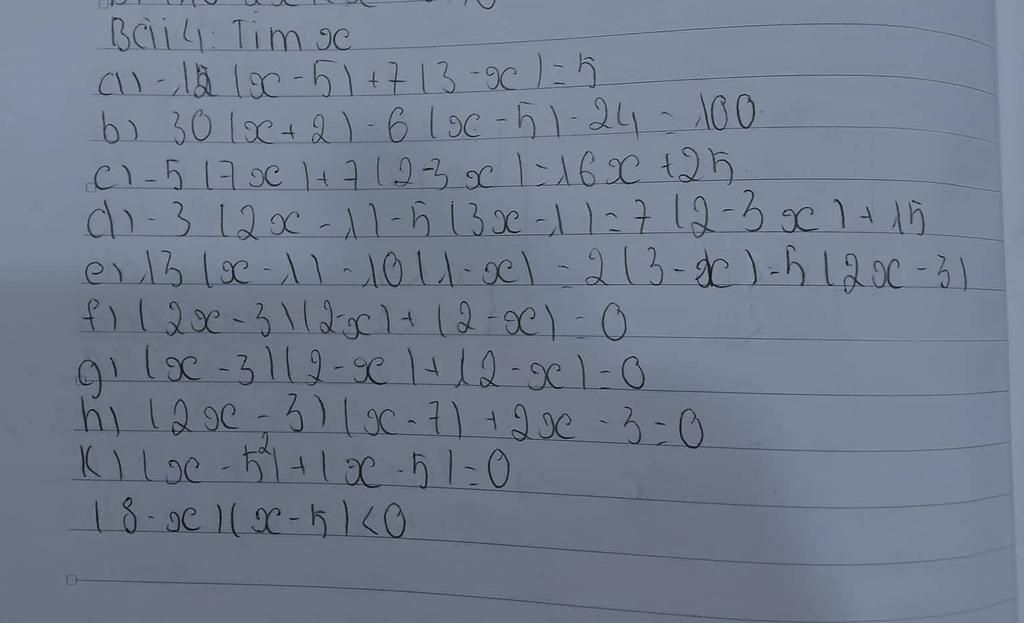 Bài 4: Tìm x
a) -12 (x - 5) + 7(3 - x) = 5
b) 30 (x + 2) - 6 (x - 5) - 24 = 100
c) -5 (7x) + 7(2-3x) = 16x + 25
d) -3 (2x - 1) - 5 (3x - 1) = 7 (2 - 3x) + 15
e) 13 (x - 1) - 10(1 - x) = 2(3 - x) - 5 (2x - 3)
f) (2x - 3)(2-x) + (2-x) = 0
g) (x - 3)(2-x) + (2-x) = 0
h) (2x - 3)(x - 7) + 2x - 3 = 0
k) (x - 5²) + (x - 5) = 0
(8-x)(x-5) < 0